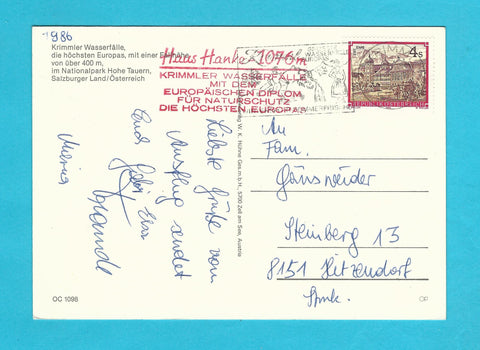 1986
Krimmler Wasserfälle,
die höchsten Europas, mit einer Fallhöhe
von über 400 m,
im Nationalpark Hohe Tauern,
Salzburger Land/Österreich
Haus Hanke 1070m
KRIMMLER WASSERFÄLLE
MIT DEM
EUROPÄISCHEN DIPLOM
FÜR NATURSCHUTZ
DIE HÖCHSTEN EUROPAS
4 S
REPUBLIK ÖSTERREICH
Liebste Grüße vom
Ausflug sendet
Euch
W. K. Hühne Ges.m.b.H., 5700 Zell am See, Austria
An
Fam.
Gänsweider
Steinberg 13
8151 Hitzendorf
Stmk.
OC 1098